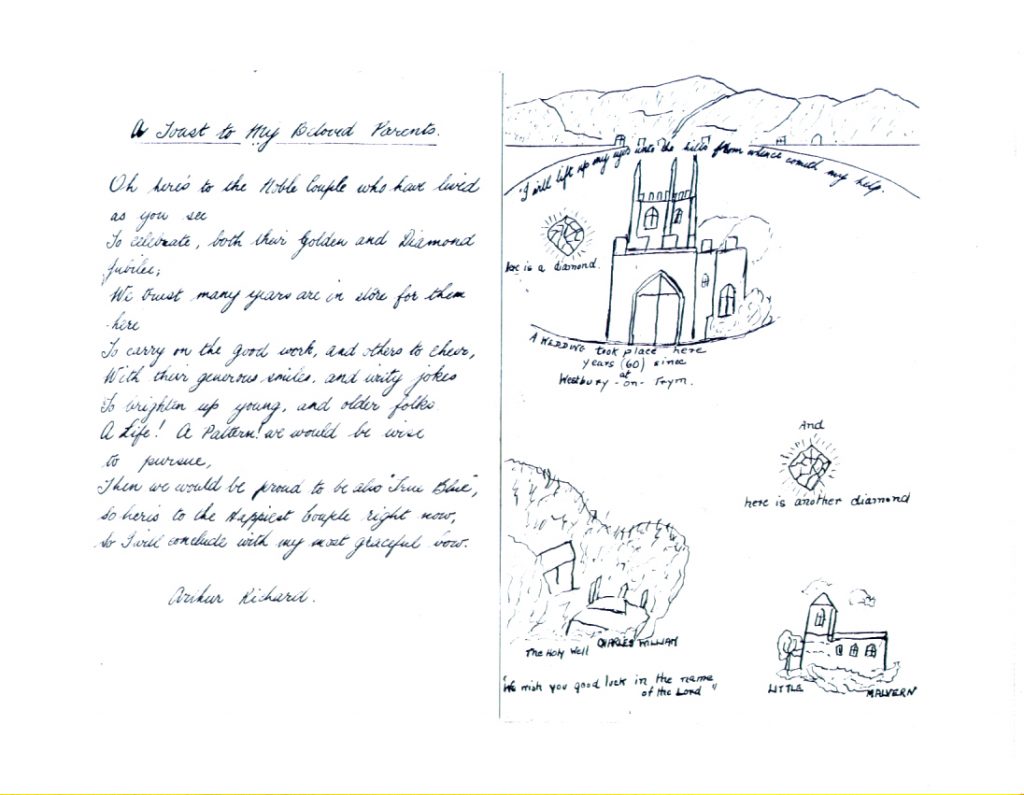 A Toast to My Beloved Parents.
Oh here's to the Noble Couple who have lived
as you see
To celebrate, both their Golden and Diamond
Jubilee;
We trust many years are in store for them
here
To carry on the good work, and others to cheer,
With their generous smiles, and witty jokes
To brighten up young, and older folks.
A Life! A Pattern! we would be wise
to pursue,
Then we would be proud to be also "True Blue",
So here's to the Happiest Couple right now,
So I will conclude with my most graceful bow.
Arthur Richard.
"I will lift up my eyes unto the hills from whence cometh my help.
here is a diamond.
A WEDDING took place here
years (60) since
at
Westbury-on-Trym.
And
here is another diamond
The Holy Well CHARLES WILLIAM
"We wish you good luck in the name
of the Lord"
LITTLE MALVERN